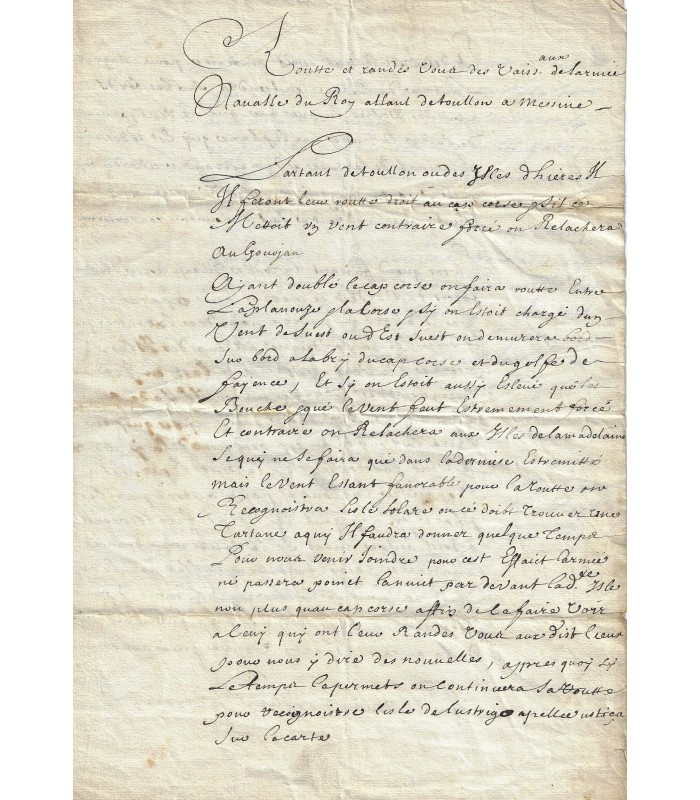 Routte et randés vous des vaiss.aux de larmée
Navalle du Roy allant detoullon a messine
Partant detoullon ou des Isles dhières Il
Il feront leur routte droit au cap corse psil co
Mettoit vn vent contraire forcé on Relachera
Au Gourjan
Ayant doublé le cap corse on faira routte Entre
Laplanouze placorse psy on Estoit chargé dun
Vent desuest ou dEst suest on demurera bord
sur bord alabry ducap corse et dugolfe de
fayence, Et sy on Estoit aussy Eslevé que les
Bouche pque levent fout Estremement forcé
Et contraire on Relachera aux Isles delamadelaine
se quy ne se faira que dans laderniere Estremitté
mais levent Estant favorable pour laroutte on
Recognoistra lisle solare ou ce doibt trouver une
Tartane aquy Il faudra donner quelque temps
Pour nous venir Joindre pour cest Effaict larmée
ne passera poinct lanuict par devant lad.te Isle
non plus quau cap corse affin de le faire voir
a ceux quy ont leur Randes vous aux dist lieux
pour nous y dire des nouvelles, appres quoy sy
Letemps lepermets on continuera sa routte
pour recognoistre lisle de lustrigo apellée ustica
sur lacarte